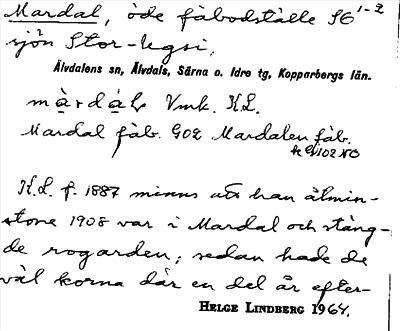 Mardal, öde fäbodställe SG 1-2
sjön Stor-Ugsi.
Älvdalens sn, Älvdals, Särna o. Idre tg, Kopparbergs län.
màrdáL Vmk. K.L.
Mardal fäb. G02 Mardalen fäb.
102 NO
K.L. f. 1887 minns att han åtmin-
stone 1908 var i Mardal och stäng-
de rogarden; sedan hade de
väl korna där en del år efter-
HELGE LINDBERG 1964.